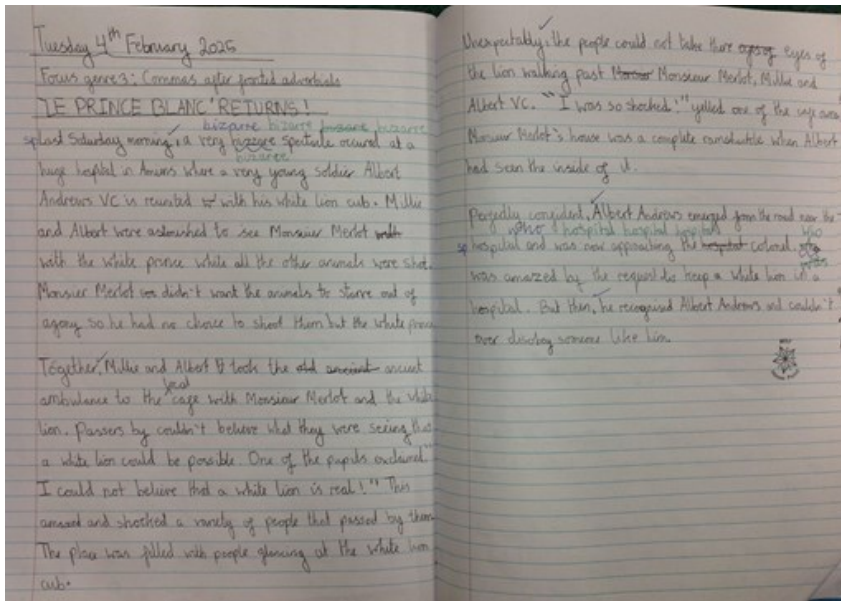 Tuesday 4th February 2025
Focus genre 3: Commas after fronted adverbials
'LE PRINCE BLANC' RETURNS!
bizarre bizarre bizzare bizarre
sp Last Saturday morning, a very bizzare spectacle occured at a
bizarre
huge hospital in Amiens where a very young soldier Albert
Andrews VC is reunited with his white lion cub. Millie
and Albert were astonished to see Monsieur Merlot
with the white prince while all the other animals were shot.
Monsieur Merlot didn't want the animals to starve out of
agony so he had no choice to shoot them but the white prince
Together, Millie and Albert took the old ancient
local
ambulance to the cafe with Monsieur Merlot and the white
lion. Passers by couldn't believe what they were seeing that
a white lion could be possible. One of the pupils exclaimed"
I could not believe that a white lion is real!" This
amazed and shocked a variety of people that passed by them
The place was filled with people glancing at the white lion
cub.
Unexpectably, the people could not take there eyes of
the lion walking past Monsieur Merlot, Millie and
Albert VC. "I was so shocked!" yelled one of the
Monsieur Merlot's house was a complete when Albert
had seen the inside of it.
Perfectly confident, Albert Andrews emerged from the road near the
who hospital hospital hospital who
sp hospital and was now approaching the hospital colonel.
was amazed by the request to keep a white lion in a
hospital. But then, he recognised Albert Andrews and couldn't
ever disobey someone like him.